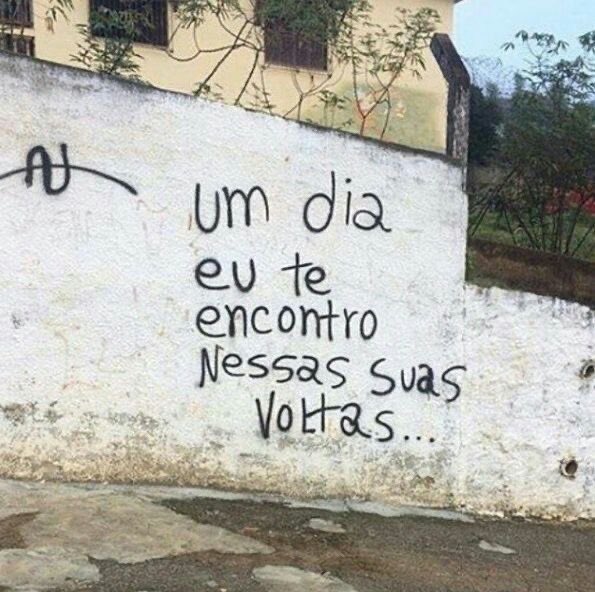 um dia
eu te
encontro
Nessas suas
Voltas...